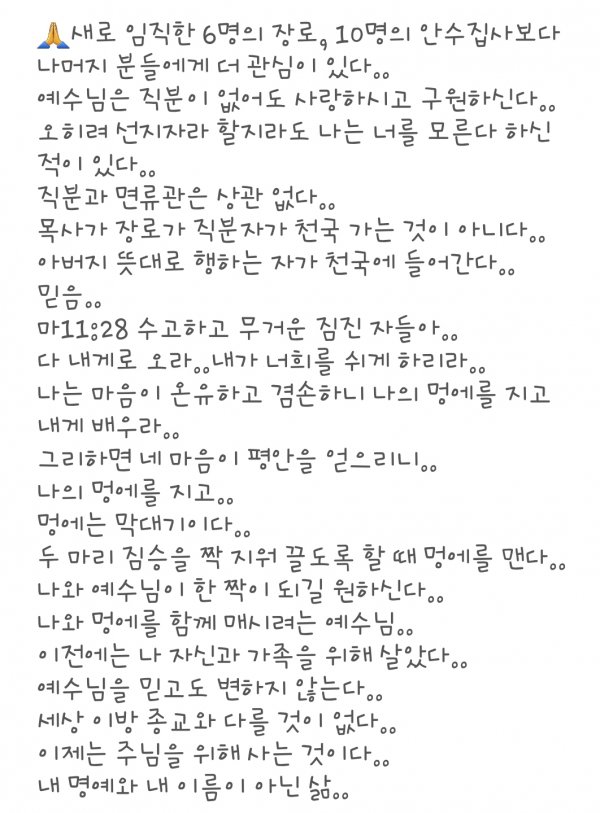 🙏새로 임직한 6명의 장로, 10명의 안수집사보다
나머지 분들에게 더 관심이 있다..
예수님은 직분이 없어도 사랑하시고 구원하신다..
오히려 선지자라 할지라도 나는 너를 모른다 하신
적이 있다..
직분과 면류관은 상관 없다..
목사가 장로가 직분자가 천국 가는 것이 아니다..
아버지 뜻대로 행하는 자가 천국에 들어간다..
믿음..
마11:28 수고하고 무거운 짐진 자들아..
다 내게로 오라..내가 너희를 쉬게 하리라..
나는 마음이 온유하고 겸손하니 나의 멍에를 지고
내게 배우라..
그리하면 네 마음이 평안을 얻으리니..
나의 멍에를 지고..
멍에는 막대기이다..
두 마리 짐승을 짝 지워 끌도록 할 때 멍에를 맨다..
나와 예수님이 한 짝이 되길 원하신다..
나와 멍에를 함께 매시려는 예수님..
이전에는 나 자신과 가족을 위해 살았다..
예수님을 믿고도 변하지 않는다..
세상 이방 종교와 다를 것이 없다..
이제는 주님을 위해 사는 것이다..
내 명예와 내 이름이 아닌 삶..